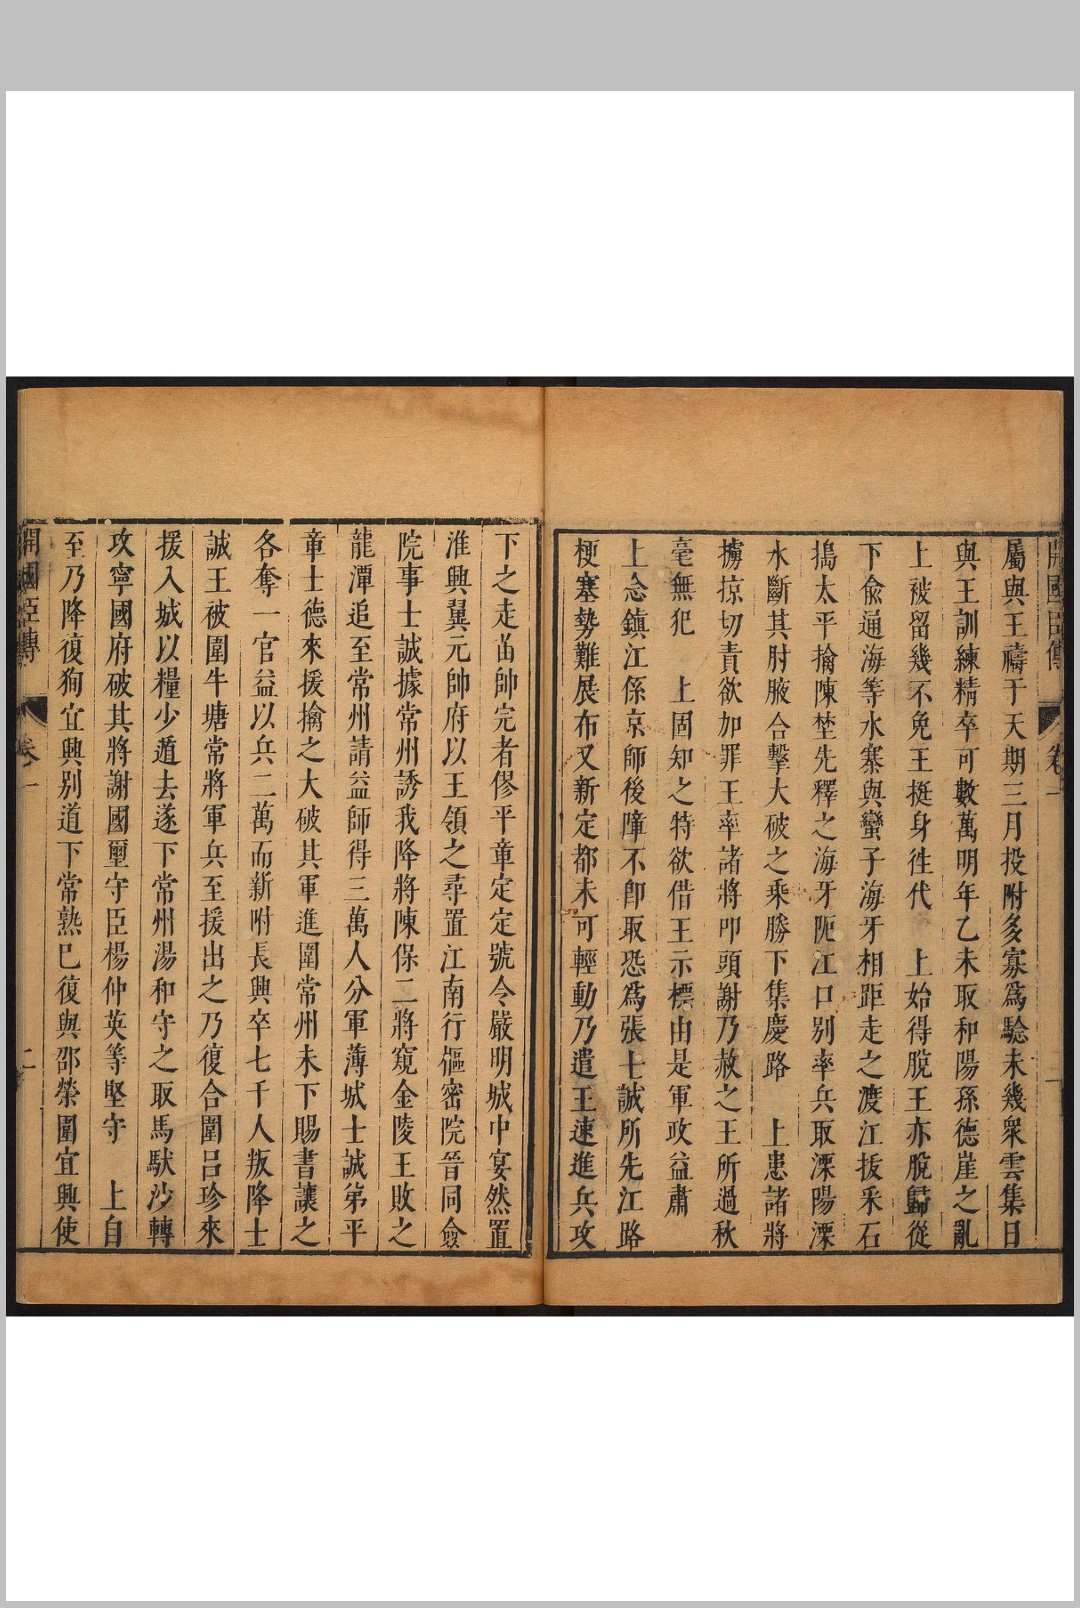 開國臣傳 卷一 一
屬與王禱于天期三月投附多寡爲騐未幾衆雲集日
與王訓練精卒可數萬明年乙未取和陽孫德崖之亂
上被留幾不免王挺身徃代 上始得脫王亦脫歸從
下俞通海等水寨與蠻子海牙相距走之渡江拔采石
搗太平擒陳埜先釋之海牙阨江口别率兵取溧陽溧
水斷其肘腋合擊大破之乘勝下集慶路 上患諸將
擄掠切責欲加罪王率諸將叩頭謝乃赦之王所過秋
毫無犯 上固知之特欲借王示標由是軍政益肅
上念鎮江係京師後障不卽取恐爲張士誠所先江路
梗塞勢難展布又新定都未可輕動乃遣王速進兵攻
下之走苗帥完者僇平章定定號令嚴明城中宴然置
淮興翼元帥府以王領之尋置江南行樞密院晉同僉
院事士誠據常州誘我降將陳保二將窺金陵王敗之
龍潭追至常州請益師得三萬人分軍薄城士誠弟平
章士德來援擒之大破其軍進圍常州未下賜書讓之
各奪一官益以兵二萬而新附長興卒七千人叛降士
誠王被圍牛塘常將軍兵至援出之乃復合圍呂珍來
援入城以糧少遁去遂下常州湯和守之取馬馱沙轉
攻寧國府破其將謝國璽守臣楊仲英等堅守 上自
至乃降復狥宜興别道下常熟巳復與邵榮圍宜興使
開國臣傳 卷一 二